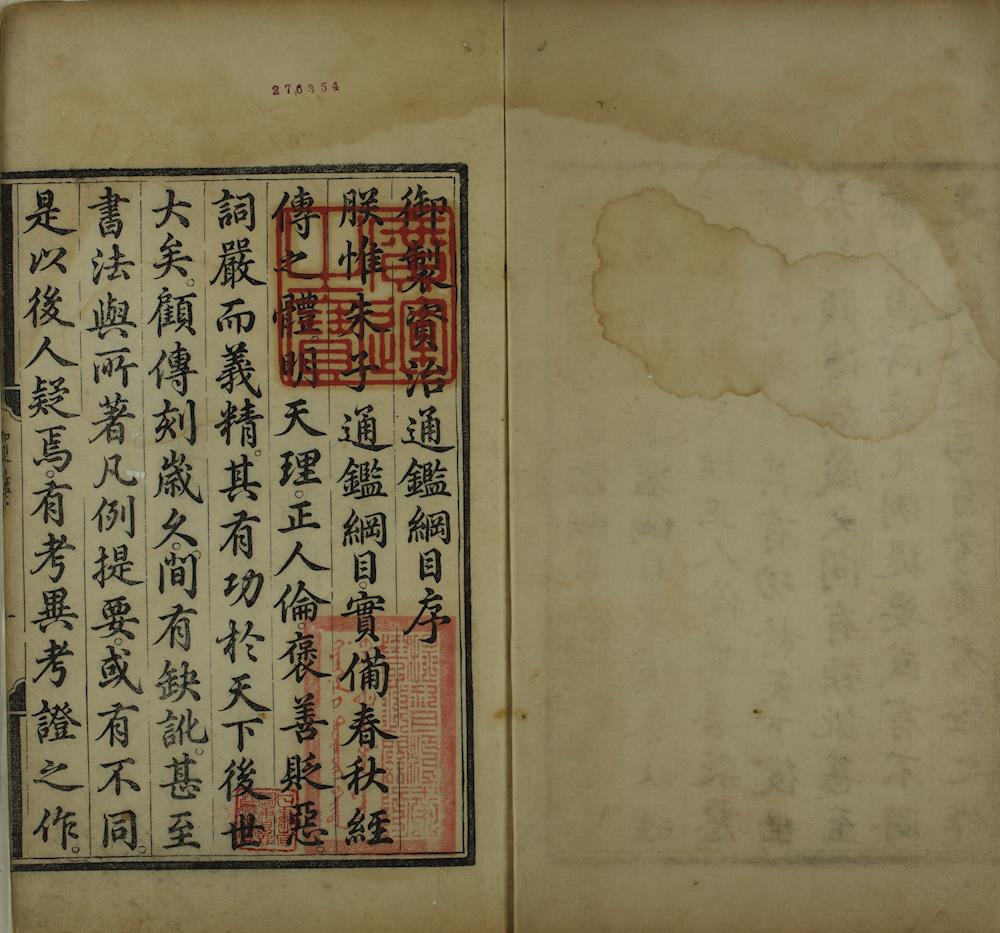 276354
御製資治通鑑綱目序
朕惟朱子通鑑綱目。實備春秋經
傳之體。明天理。正人倫。褒善貶惡。
詞嚴而義精。其有功於天下後世
大矣。顧傳刻歲久。間有缺訛。甚至
書法與所著凡例提要。或有不同。
是以後人疑焉。有考異考證之作。